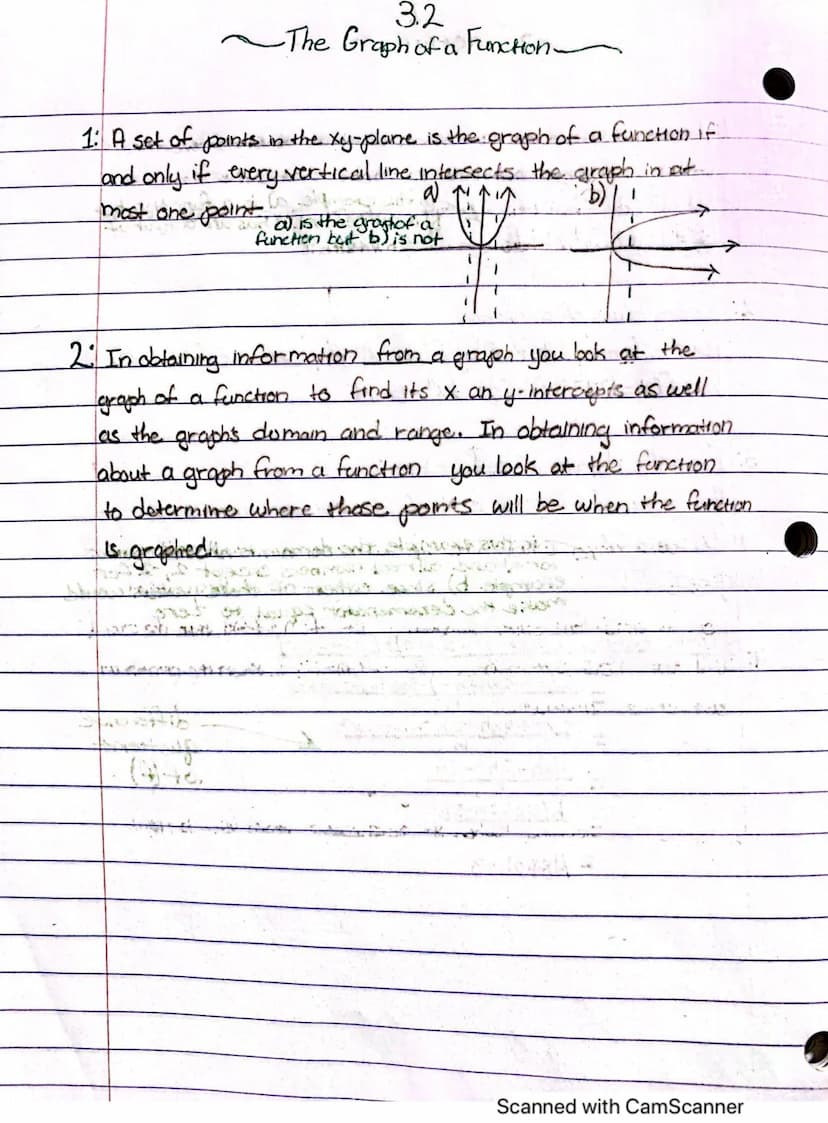 3.2
The Graph of a Function
1: A set of points in the xy-plane is the graph of a function if
and only if every vertical line intersects the graph in at
most one point
a)
b)
a) is the graph of a
function but b) is not
2: In obtaining information from a graph you look at the
graph of a function to find its x an y-intercepts as well
as the graphs domain and range. In obtaining information
about a graph from a function you look at the function
to determine where those points will be when the function
is graphed.
Scanned with CamScanner